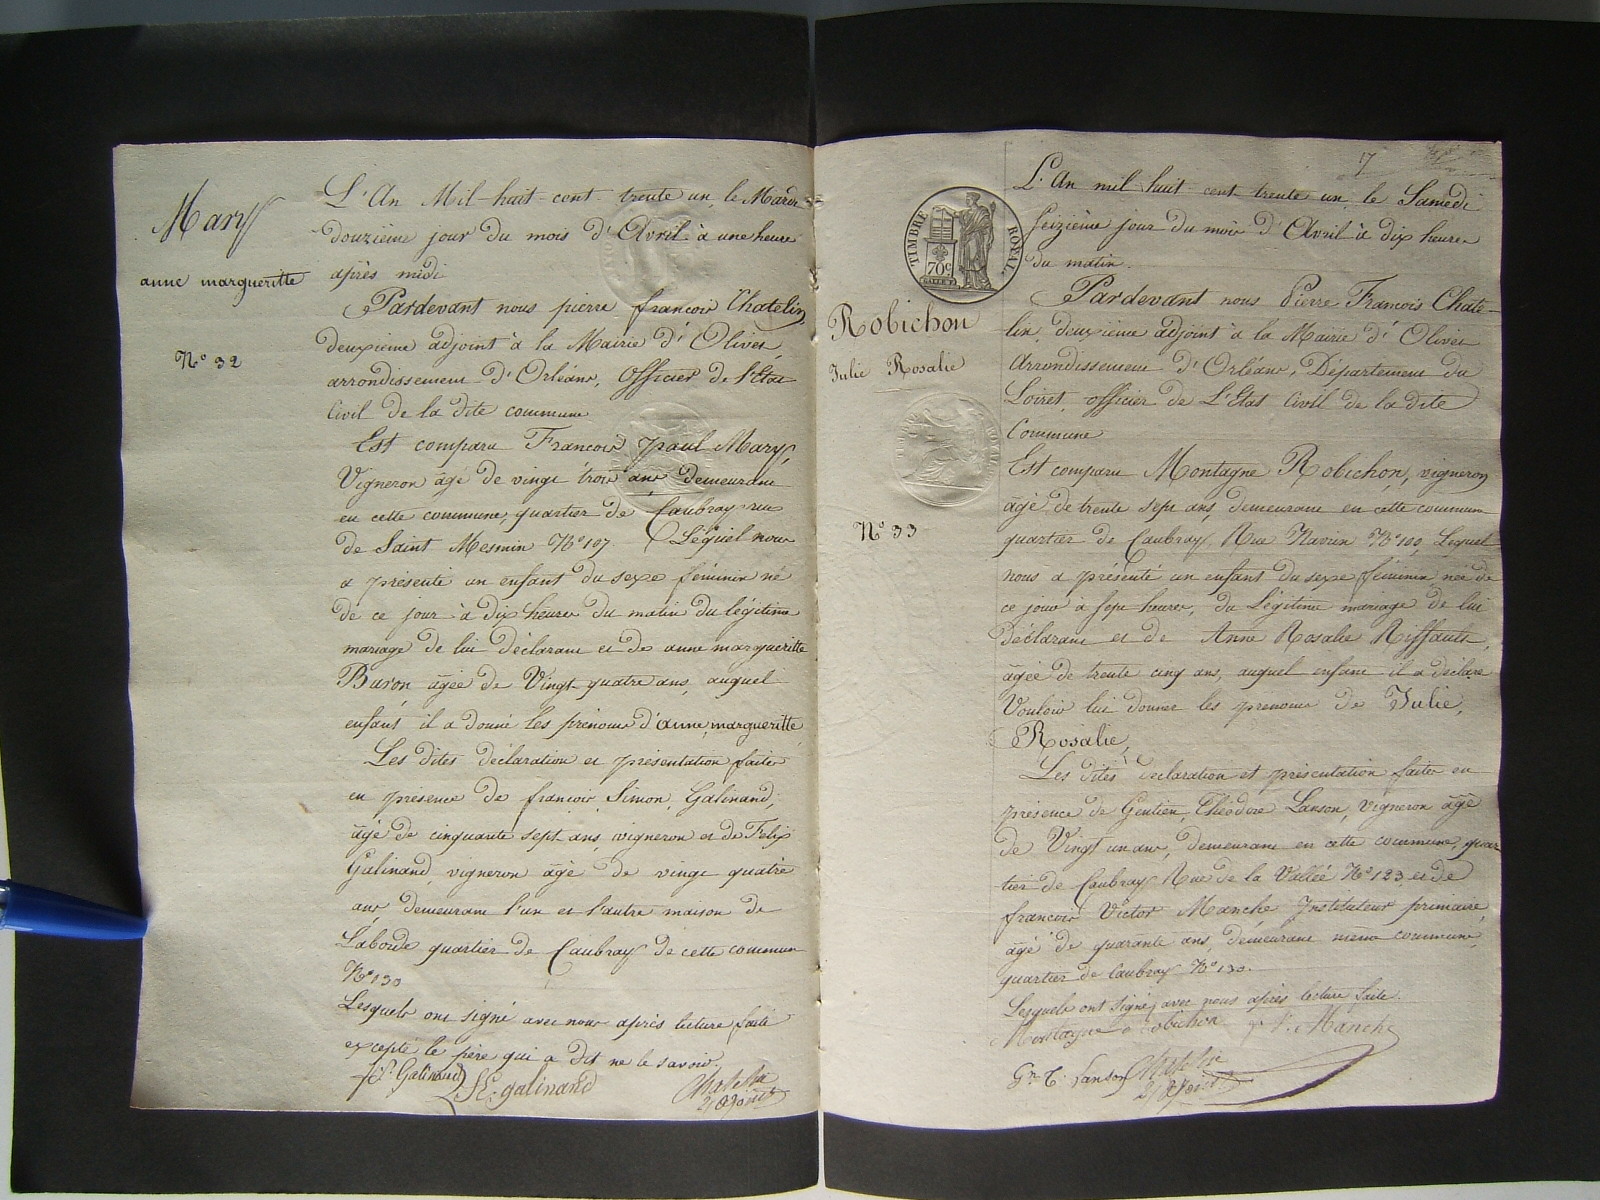 Mary
anne margueritte
N° 32
L'An Mil huit cent trente un, le Mardi
douzième jour du mois d'Avril à une heure
après midi
Pardevant nous pierre françois Chatelin,
deuxième adjoint à la Mairie d'Olivet
arrondissement d'Orléans, Officier de l'Etat
Civil de la dite commune
Est comparu François paul Mary,
Vigneron âgé de vingt trois ans demeurant
en cette commune, quartier de Caubray rue
de Saint Mesmin N° 107 Lequel nous
a présenté un enfant du sexe féminin né
de ce jour à dix heures du matin du légitime
mariage de lui déclarant et de anne margueritte
Baron âgée de Vingt quatre ans, auquel
enfant il a donné les prénoms d'anne, margueritte
Les dites déclaration et présentation faites
en présence de françois, Simon, Galinand,
âgé de cinquante sept ans, vigneron et de Felix
Galinand, vigneron âgé de vingt quatre
ans, demeurant l'un et l'autre maison de
Laborde quartier de Caubray de cette commune
N° 130
Lesquels ont signé avec nous après lecture faite
excepté le père qui a dit ne le savoir.
f. S. Galinand fc. galinand Chatelin
2e adjoint
17
TIMBRE ROYAL
70c
Robichon
Julie Rosalie
N° 33
L'An mil huit cent trente un le Samedi
seizième jour du mois d'Avril à dix heures
du matin.
Pardevant nous Pierre François Chate-
lin, deuxième adjoint à la Mairie d'Olivet
Arrondissement d'Orléans, Département du
Loiret, officier de L'Etat Civil de la dite
Commune
Est comparu Montagne Robichon, vigneron
âgé de trente sept ans, demeurant en cette commune
quartier de Caubray, Rue N° 100, Lequel
nous a présenté un enfant du sexe féminin, née de
ce jour à sept heures, du Légitime mariage de lui
Déclarant et de Anne Rosalie Riffault,
agée de trente cinq ans, auquel enfant il a déclaré
Vouloir lui donner les prenoms de Julie,
Rosalie,
Les dites déclaration et présentation faites en
présence de Gentien, Théodore Lanson, Vigneron âgé
de Vingt un ans, demeurant en cette commune, quar
tier de Caubray Rue de la Vallée N° 123, et de
françois Victor Manché, Instituteur primaire,
âgé de quarante ans, demeurant même commune,
quartier de Caubray N° 130.
Lesquels ont signé, avec nous après lecture faite.
Montagne Robichon Manché
Gn. T. Lanson Chatelin
2e adjoint